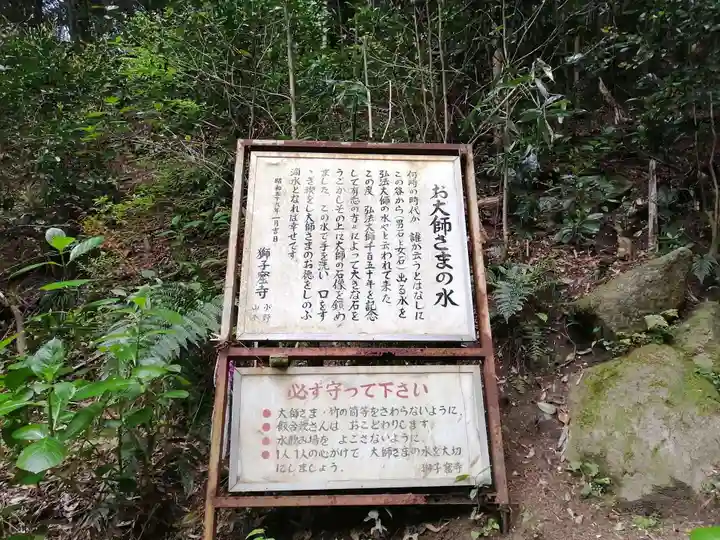 お大師さまの水
何時の時代か 誰か云うとはなしに
この谷から(男石と女石)出る水を
弘法大師の水やと云われて来た
この度 弘法大師千百五十年を記念
して有志の方々によって大きな石を
うごかしその上に大師の石像を鎮め
ました この水で手を洗い 口をすゝぎ
炊をし大師さまのお徳をしのぶ
滴水となれば幸せです。
昭和五十八年一月吉日
獅子窟寺
必ず守って下さい
● 大師さま・竹の筒等をさわらないように。
● 飯合炊さんは おことわりします。
● 水飲み場を よごさないように。
● 1人1人の心がけで 大師さまの水を大切
にしましょう。 獅子窟寺